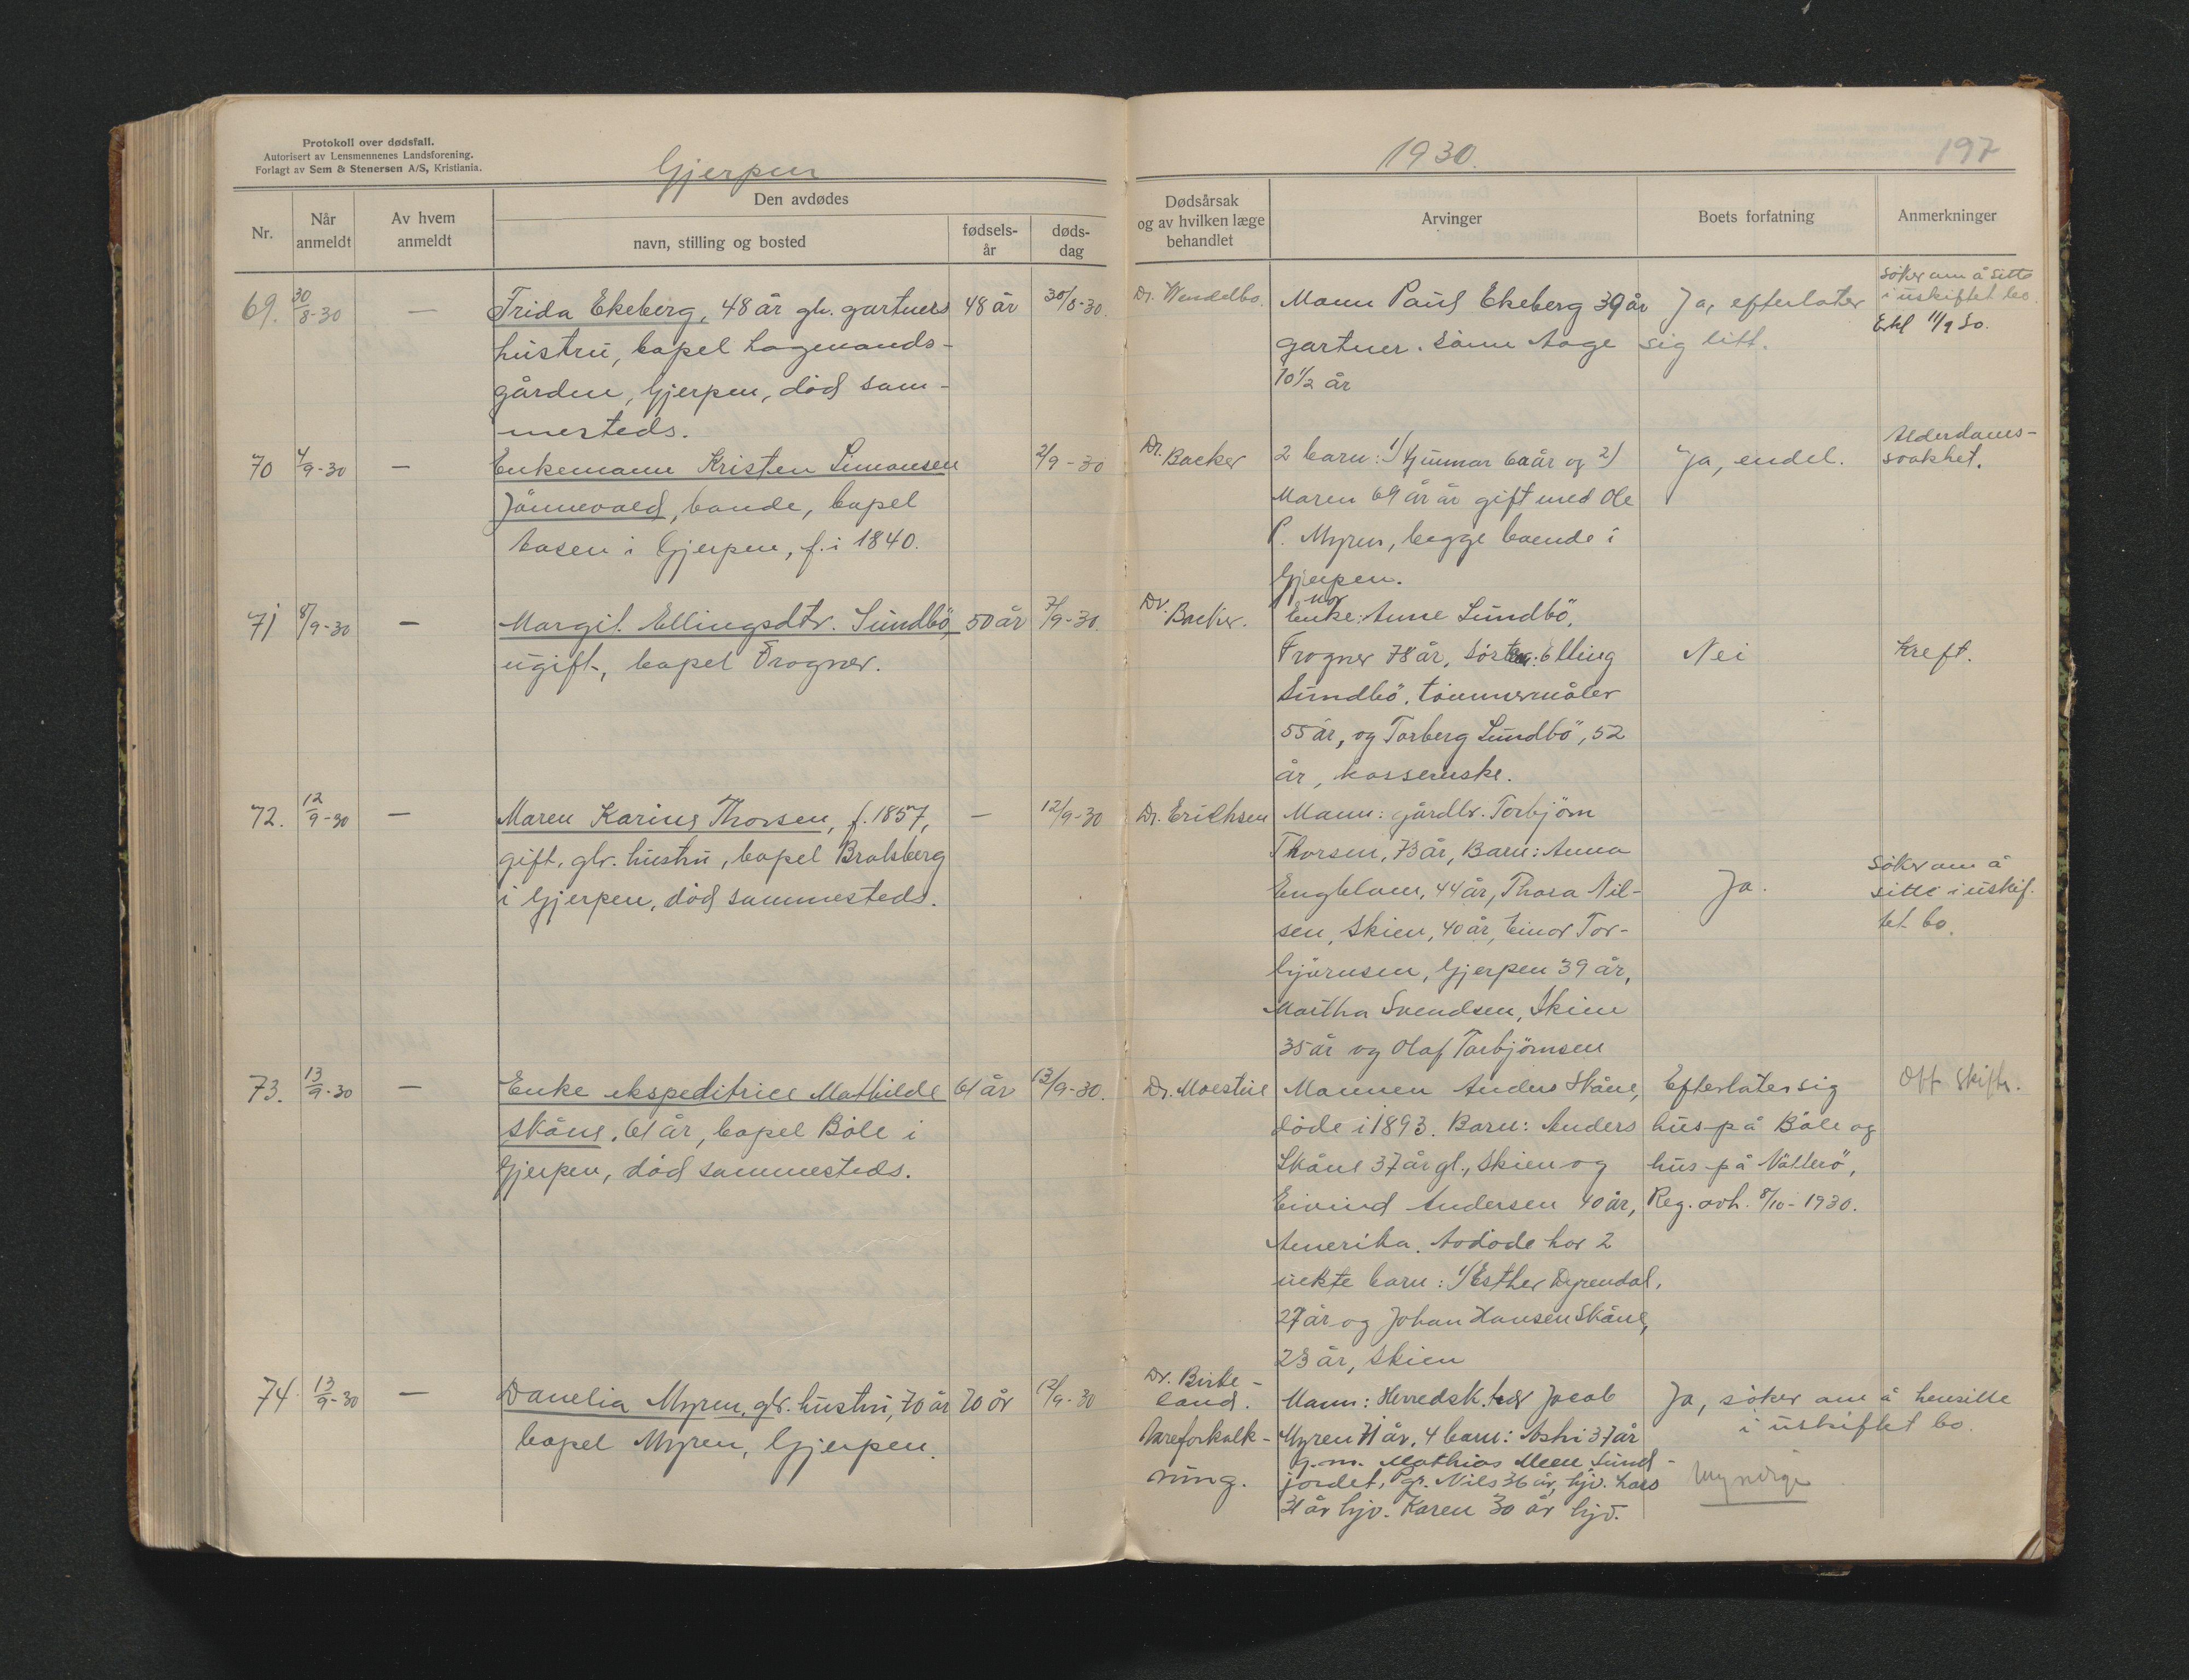 Protokoll over dødsfall.
Autorisert av Lensmennenes Landsforening.
Forlagt av Sem & Stenersen A/S, Kristiania.
Gjerpen
Nr.
Når anmeldt
Av hvem anmeldt
Den avdødes
navn, stilling og bosted
fødsels-år
døds-dag
1930.
197
Dødsårsak og av hvilken læge behandlet
Arvinger
Boets forfatning
Anmerkninger
69. 30/8-30 — Frida Ekeberg, 48 år gl. gartners 48 år 30/8-30.
hustru, bopel
gården, Gjerpen, död sam-
mesteds.
Dr. Wendelbo. Mann Paul Ekeberg 39 år
gartner. Sönn Aage
10½ år
Ja, efterlater
sig litt.
Söker om å sitte
i uskiftet bo.
11/9 30.
70 4/9-30 — Enkemann Kristen Simonsen 2/9-30
Jönnevald, bonde, bopel
Aasen i Gjerpen, f. i 1840.
Dr. Backer 2 barn: 1) Gunnar år og 2)
Maren 69 år är gift med Ole
P. Myren, begge boende i
Gjerpen.
Ja, endel.
Alderdoms-
svakhet.
71 8/9-30 — Margit Ellingsdtr. Sundbö, 50 år 7/9-30.
ugift, bopel Frogner.
Dr. Backer. Enke: mor Anne Sundbö,
Frogner 78 år, Elling
Sundbö, tömmermåler
55 år, og Torberg Sundbö, 52
år,
Nei
Kreft.
72. 12/9-30 — Maren Karine Thorsen, f. 1857, — 12/9-30
gift, glr. hustru, bopel Bratsberg
i Gjerpen, död sammesteds.
Dr. Erichsen Mann: gårdbr. Torbjörn
Thorsen, 73 år, Barn: Anna
44 år, Thora Nil-
sen, Skien, 40 år, Einar Tor-
björnsen, Gjerpen 39 år,
Martha Svendsen, Skien
35 år og Olaf Torbjörnsen
Ja.
Söker om å
sitte i uskif-
tet bo.
73. 13/9-30 — Enke ekspeditrice Mathilde 61 år 13/9-30.
Skåne, 61 år, bopel Böle i
Gjerpen, död sammesteds.
Dr. Moestue Mannen Anders Skåne,
döde i 1893. Barn: Anders
Skåne 37 år gl., Skien og
Eivind Andersen 40 år,
Amerika. Avdöde har 2
uekte barn: 1) Esther Dyrendal,
27 år og Johan Hansen Skåne,
23 år, Skien
Efterlater sig
hus på Böle og
hus på Nötterö,
Reg. avh. 8/10-1930.
Off. skifte.
74. 13/9-30 — Danelia Myren, glr. hustru, 70 år 70 år 12/9-30
bopel Myren, Gjerpen.
Dr. Birke-
land.
Aareforkalk-
ning.
Mann: Herredsk. Jacob
Myren 71 år, 4 barn: 37 år
g. m. Mathias Meen Sund-
jordet, Pgr. Nils 36 år, hjv. Lars
31 år hjv. Karen 30 år hjv.
Ja, söker om å hensitte
i uskiftet bo.
Myndige